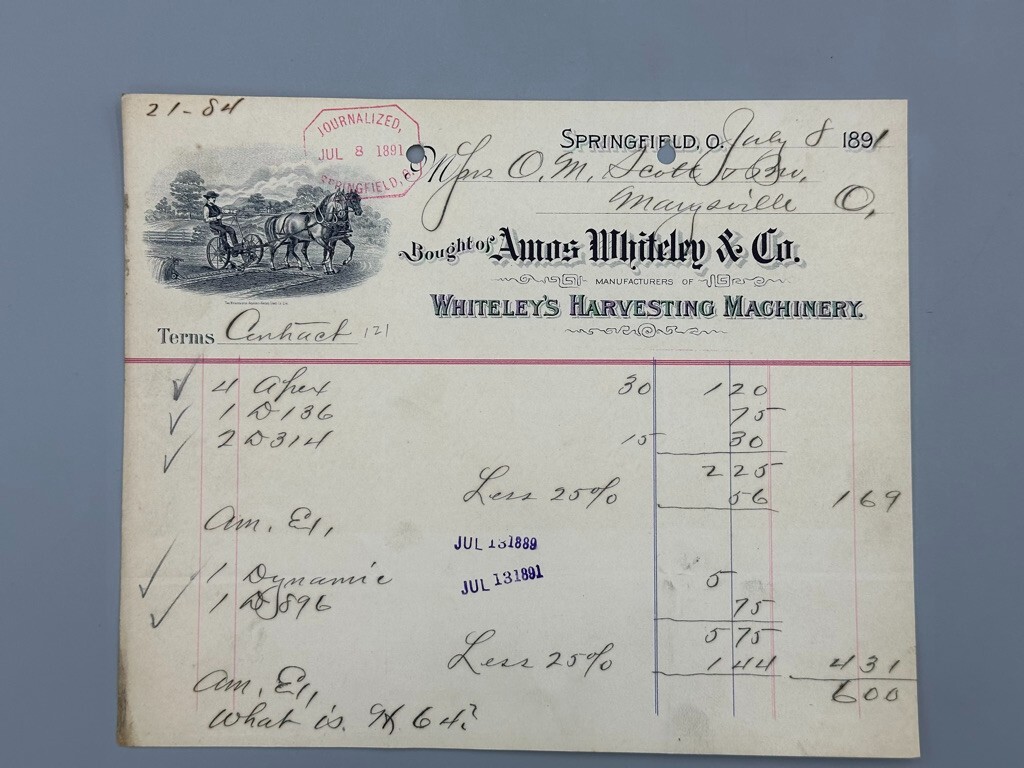 21-84
JOURNALIZED,
JUL 8 1891
SPRINGFIELD, O.
SPRINGFIELD, O. July 8 1891
O. M. Scott & Bro,
Marysville O,
Bought of Amos Whiteley & Co.
MANUFACTURERS OF
WHITELEY'S HARVESTING MACHINERY.
Terms Contract 121
4 Apex 30 1 20
1 D136 75
2 D314 15 30
2 25
Less 25% 56 1 69
Am. Ex,
JUL 131889
1 Dynamic 5
JUL 131891
1 D896 75
5 75
Less 25% 1 44 4 31
6 00
Am. Ex,
What is. H 64?